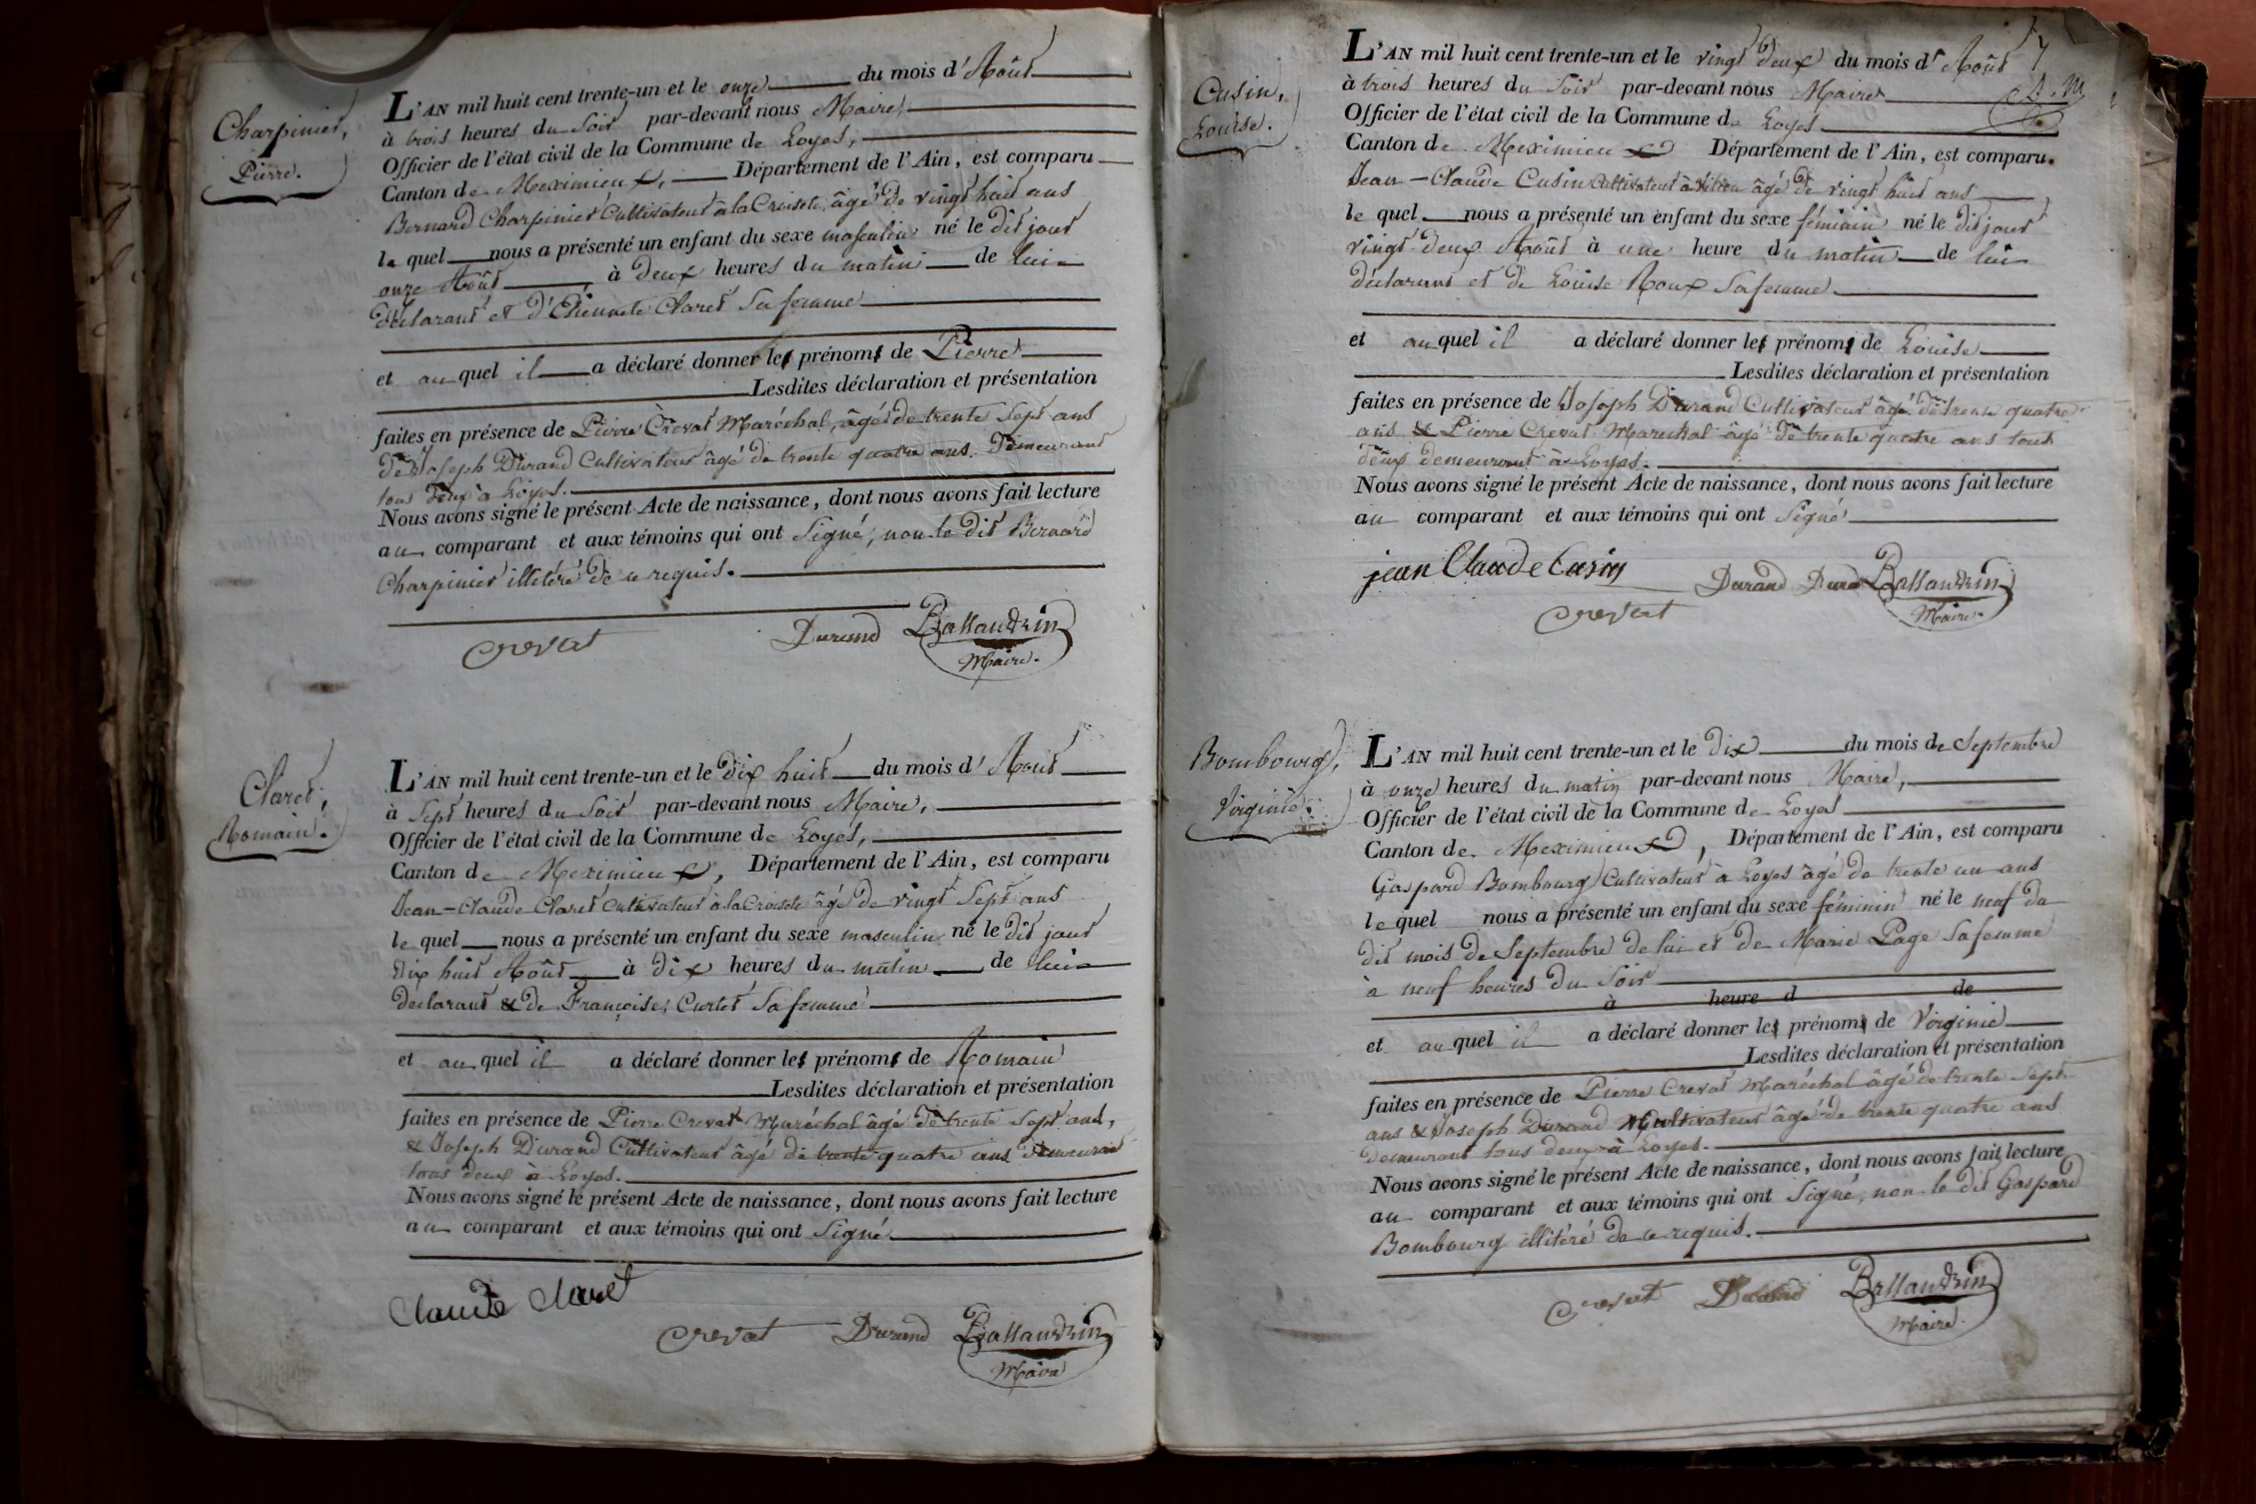 Charpinier,
Pierre.
L'AN mil huit cent trente-un et le onze du mois d'Août
à trois heures du Soir par-devant nous Maire,
Officier de l'état civil de la Commune de Loyes,
Canton de Meximieux, Département de l'Ain, est comparu
Bernard Charpinier Cultivateur à la Croisete, âgé de vingt huit ans
le quel nous a présenté un enfant du sexe masculin né le dit jour
onze Août, à deux heures du matin de lui
déclarant et d'Etiennete Claret Sa femme
et au quel il a déclaré donner les prénoms de Pierre
Lesdites déclaration et présentation
faites en présence de Pierre Crevat Maréchal, âgé de trente Sept ans
de Joseph Durand Cultivateur âgé de trente quatre ans. Demeurant
tous deux à Loyes.
Nous avons signé le présent Acte de naissance, dont nous avons fait lecture
au comparant et aux témoins qui ont Signé, non le dit Bernard
Charpinier illitéré de ce requis.
Crevat Durand Ballandrin
Maire.
Claret,
Romain.
L'AN mil huit cent trente-un et le dix huit du mois d'Aout
à Sept heures du Soir par-devant nous Maire,
Officier de l'état civil de la Commune de Loyes,
Canton de Meximieux, Département de l'Ain, est comparu
Jean-Claude Claret Cultivateur à la Croisete âgé de vingt Sept ans
le quel nous a présenté un enfant du sexe masculin né le dit jour
dix huit Août à dix heures du matin de lui
déclarant & de Françoise Curtet Sa femme
et au quel il a déclaré donner les prénoms de Romain
Lesdites déclaration et présentation
faites en présence de Pierre Crevat Maréchal âgé de trente Sept ans,
& Joseph Durand Cultivateur âgé de trente quatre ans demeurant
tous deux à Loyes.
Nous avons signé le présent Acte de naissance, dont nous avons fait lecture
au comparant et aux témoins qui ont Signé
Claude Claret
Crevat Durand Ballandrin
Maire
7
Cusin,
Louise.
L'AN mil huit cent trente-un et le vingt deux du mois d'Août
à trois heures du Soir par-devant nous Maire
Officier de l'état civil de la Commune de Loyes
Canton de Meximieux Département de l'Ain, est comparu
Jean-Claude Cusin Cultivateur à âgé de vingt huit ans
le quel nous a présenté un enfant du sexe féminin né le dit jour
vingt deux Août à une heure du matin de lui
déclarant et de Louise Roux Sa femme
et au quel il a déclaré donner les prénoms de Louise
Lesdites déclaration et présentation
faites en présence de Joseph Durand Cultivateur âgé de trente quatre
ans & Pierre Crevat Marechal âgé de trente quatre ans tous
deux demeurant à Loyes.
Nous avons signé le présent Acte de naissance, dont nous avons fait lecture
au comparant et aux témoins qui ont Signé
jean Claude Cusin Durand Ballandrin
Crevat Maire.
Bombourg,
Virginie.
L'AN mil huit cent trente-un et le dix du mois de Septembre
à onze heures du matin par-devant nous Maire,
Officier de l'état civil de la Commune de Loyes
Canton de Meximieux, Département de l'Ain, est comparu
Gaspard Bombourg Cultivateur à Loyes âgé de trente un ans
le quel nous a présenté un enfant du sexe féminin né le neuf du
dit mois de Septembre de lui et de Marie Page Sa femme
à neuf heures du Soir
à heure d de
et au quel il a déclaré donner les prénoms de Virginie
Lesdites déclaration et présentation
faites en présence de Pierre Crevat Maréchal âgé de trente Sept
ans & Joseph Durand Cultivateur âgé de trente quatre ans
demeurant tous deux à Loyes.
Nous avons signé le présent Acte de naissance, dont nous avons fait lecture
au comparant et aux témoins qui ont Signé, non le dit Gaspard
Bombourg illitéré de ce requis.
Crevat Durand Ballandrin
Maire.